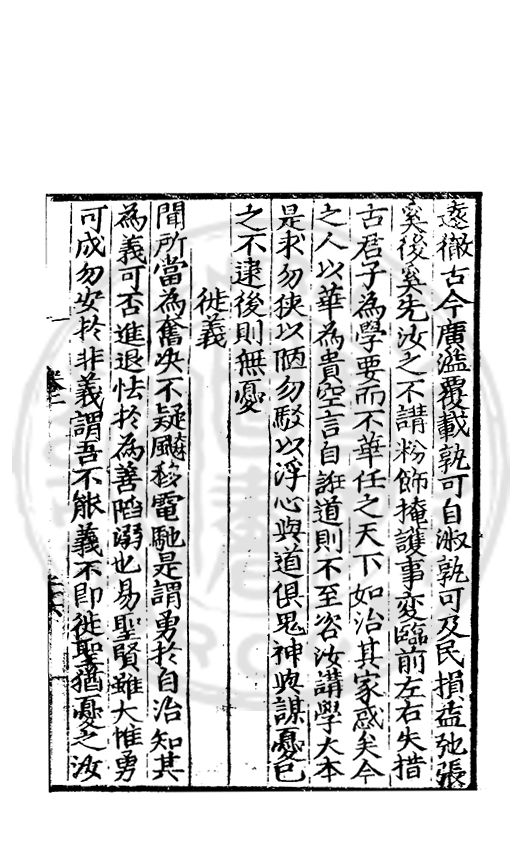 遠徹古今廣溢覆載孰可自淑孰可及民損益弛張
奚後奚先汝之不講粉飾掩護事變臨前左右失措
古君子為學要而不華任之天下如治其家惑矣今
之人以華為貴空言自誑道則不至咨汝講學大本
是求勿狹以陋勿駁以浮心與道俱鬼神與謀憂已
之不逮後則無憂
徙義
聞所當為奮决不疑飈移電馳是謂勇於自治知其
為義可否進退怯於為善陷溺也易聖賢雖大惟勇
可成勿安於非義謂吾不能義不即徙聖猶憂之汝
卷一